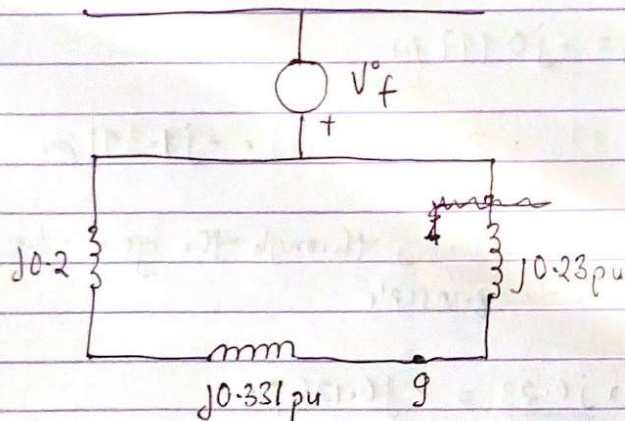 V°f
+
j0.2
j0.23pu
j0.331pu
g